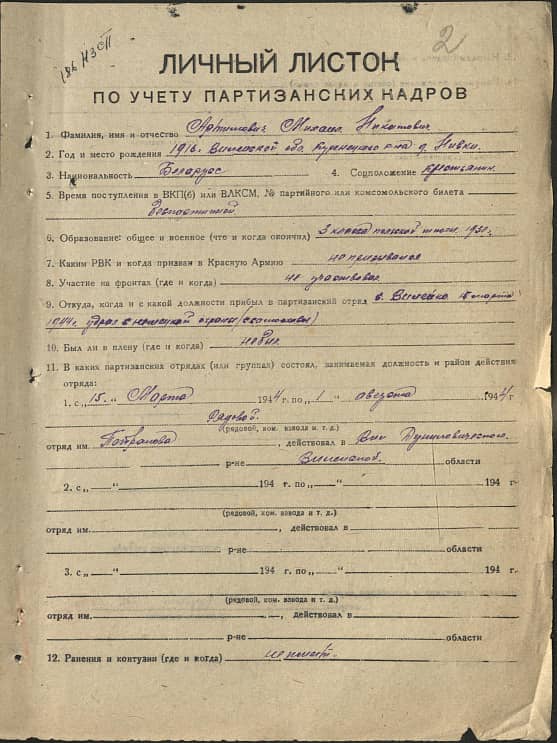 2
ЛИЧНЫЙ ЛИСТОК
ПО УЧЕТУ ПАРТИЗАНСКИХ КАДРОВ
1. Фамилия, имя и отчество Михаил
2. Год и место рождения 1916 Вилейской обл. д. Нивки
3. Национальность Беларус 4. Соцположение крестьянин
5. Время поступления в ВКП(б) или ВЛКСМ, № партийного или комсомольского билета
беспартийный
6. Образование: общее и военное (что и когда окончил) 3 класса польской
7. Каким РВК и когда призван в Красную Армию не призывался
8. Участие на фронтах (где и когда) не участвовал
9. Откуда, когда и с какой должности прибыл в партизанский отряд марта
1944г.
10. Был ли в плену (где и когда) не был
11. В каких партизанских отрядах (или группах) состоял, занимаемая должность и район действия
отряда:
1. с „15.“ Марта 1944 г. по „1“ августа 1944 г
Рядовой.
(рядовой, ком. взвода и т. д.)
отряд им. , действовал в
р-не области
2. с „ “ 194 г. по „ “ 194 г
(рядовой, ком. взвода и т. д.)
отряд им. , действовал в
р-не области
3. с „ “ 194 г. по „ “ 194 г.
(рядовой, ком. взвода и т. д.)
отряд им. , действовал в
р-не области
12. Ранения и контузии (где и когда) не имеет.